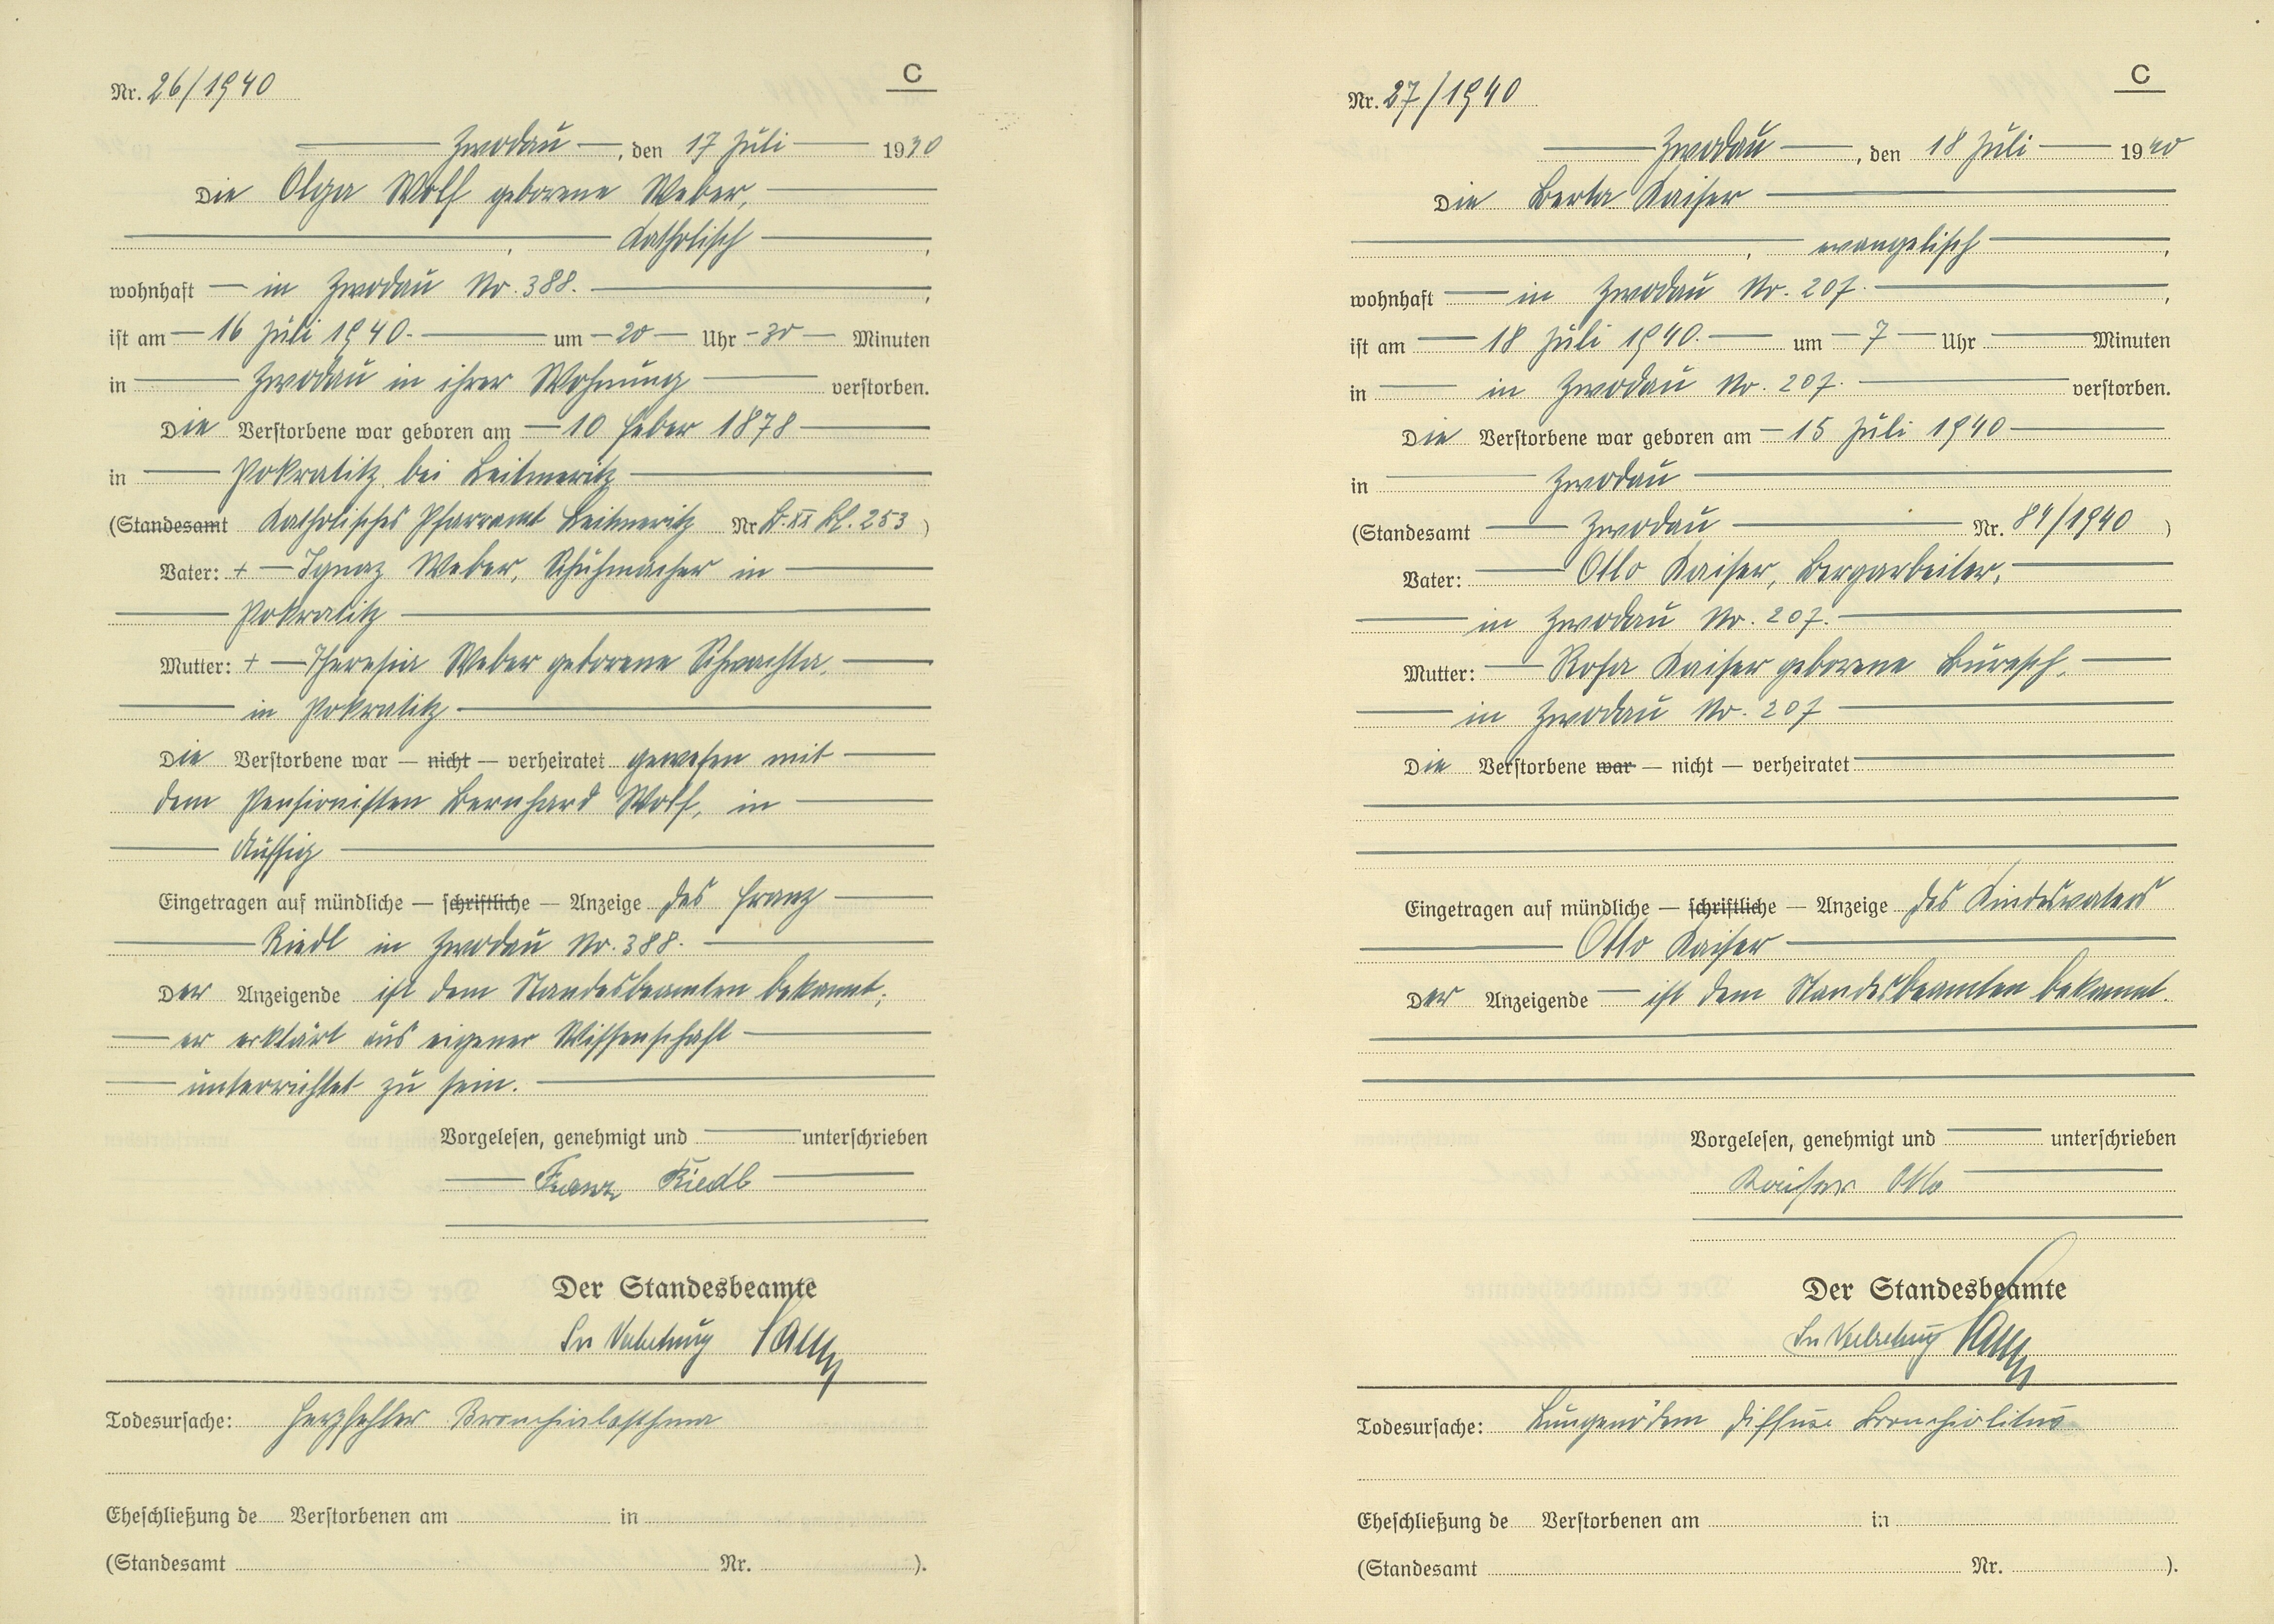 C
Nr. 26/1940
Zwodau, den 17 Juli 1940
Die Olga Wolf geborene Weber,
, Katholisch,
wohnhaft in Zwodau Nr. 388.,
ist am 16 Juli 1940. um 20 Uhr 30 Minuten
in Zwodau in ihrer Wohnung verstorben.
Die Verstorbene war geboren am 10 Feber 1878
in Pokratitz bei Leitmeritz
(Standesamt Katholisches Pfarramt Leitmeritz Nr B. XX Bl. 253)
Vater: + Ignaz Weber, Schuhmacher in
Pokratitz
Mutter: + Theresia Weber geborene Schwachta,
in Pokratitz
Die Verstorbene war — nicht — verheiratet gewesen mit
dem Pensionisten Bernhard Wolf, in
Aussig
Eingetragen auf mündliche — schriftliche — Anzeige des Franz
Riedl in Zwodau Nr. 388.
Der Anzeigende ist dem Standesbeamten bekannt;
er erklärt aus eigener Wissenschaft
unterrichtet zu sein.
Vorgelesen, genehmigt und unterschrieben
Franz Riedl
Der Standesbeamte
In Vertretung
Todesursache: Herzfehler Bronchialasthma
Eheschließung de Verstorbenen am in
(Standesamt Nr. ).
C
Nr. 27/1940
Zwodau, den 18 Juli 1940
Die Berta Kaiser
, evangelisch,
wohnhaft in Zwodau Nr. 207.,
ist am 18 Juli 1940. um 7 Uhr Minuten
in in Zwodau Nr. 207. verstorben.
Die Verstorbene war geboren am 15 Juli 1940
in Zwodau
(Standesamt Zwodau Nr. 84/1940)
Vater: Otto Kaiser, Bergarbeiter,
in Zwodau Nr. 207.
Mutter: Rosa Kaiser geborene Buresch,
in Zwodau Nr. 207
Die Verstorbene war — nicht — verheiratet
Eingetragen auf mündliche — schriftliche — Anzeige des Kindesvaters
Otto Kaiser
Der Anzeigende ist dem Standesbeamten bekannt.
Vorgelesen, genehmigt und unterschrieben
Kaiser Otto
Der Standesbeamte
In Vertretung
Todesursache: Lungenödem diffuse Bronchiolitus
Eheschließung de Verstorbenen am in
(Standesamt Nr. ).